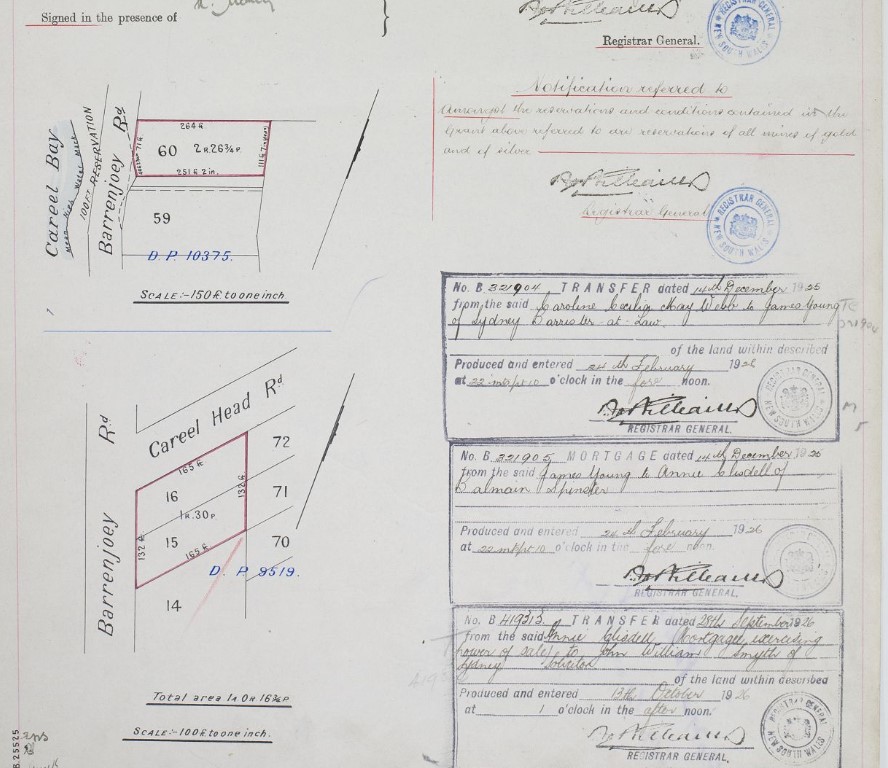 Signed in the presence of
Registrar General.
REGISTRAR GENERAL
NEW SOUTH WALES
Notification referred to
Amongst the reservations and conditions contained in the
Grant above referred to are reservations of all mines of gold
and of silver
Registrar General
REGISTRAR GENERAL
NEW SOUTH WALES
Careel Bay
Mean High Water Mark
100FT RESERVATION
Barrenjoey Rd
264 ft
60 2R. 26¾P
251 ft 2 in.
59
D. P. 10375.
SCALE:-150 ft to one inch
Careel Head Rd
Barrenjoey Rd
165 ft
132 ft
16
1R. 30P
15
132 ft
165 ft
14
72
71
70
D. P. 9519.
Total area 1A 0R 16¾P
SCALE:-100 ft to one inch.
No. B 321904 TRANSFER dated 14th December 1925
from the said Caroline Cecilia May Webb to James Young
of Sydney Barrister-at-Law.
of the land within described
Produced and entered 24th February 1926
at 22 mts pt 10 o'clock in the fore noon.
REGISTRAR GENERAL.
No. B 321905 MORTGAGE dated 14th December 1925
from the said James Young to Annie Clisdell of
Balmain Spinster
Produced and entered 24th February 1926
at 22 mts pt 10 o'clock in the fore noon
REGISTRAR GENERAL.
No. B 419313 TRANSFER dated 28th September 1926
from the said Annie Clisdell Mortgagee exercising
power of sale to John William Smyth of
Sydney Solicitor
of the land within described
Produced and entered 13th October 1926
at 1 o'clock in the after noon.
REGISTRAR GENERAL.